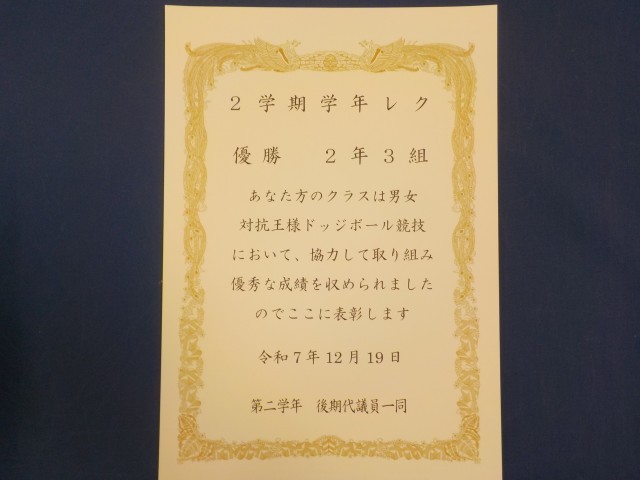 2学期学年レク
優勝　2年3組
あなた方のクラスは男女
対抗王様ドッジボール競技
において、協力して取り組み
優秀な成績を収められました
のでここに表彰します
令和7年12月19日
第二学年　後期代議員一同